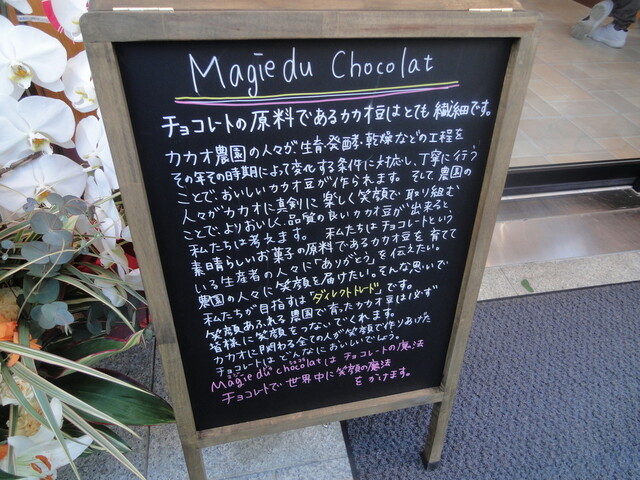 Magie du Chocolat
チョコレートの原料であるカカオ豆はとても繊細です。
カカオ農園の人々が生育・発酵・乾燥などの工程を
その年その時期によって変化する条件に対応し、丁寧に行う
ことで、おいしいカカオ豆が作られます。そして、農園の
人々がカカオに真剣に楽しく笑顔で取り組む
ことで、よりおいしく、品質の良いカカオ豆が出来ると
私たちは考えます。 私たちはチョコレートという
素晴らしいお菓子の原料であるカカオ豆を育てて
いる生産者の人々に「ありがとう」を伝えたい。
農園の人々に笑顔を届けたい。そんな思いで
私たちが目指すは「ダイレクトトレード」です。
笑顔あふれる農園で育ったカカオ豆は必ず
皆様に笑顔をつないでくれます。
カカオに関わる全ての人が笑顔で作りあげた
チョコレートはどんなにおいしいでしょう。
Magie du chocolatは チョコレートの魔法
チョコレートで世界中に笑顔の魔法
をかけます。